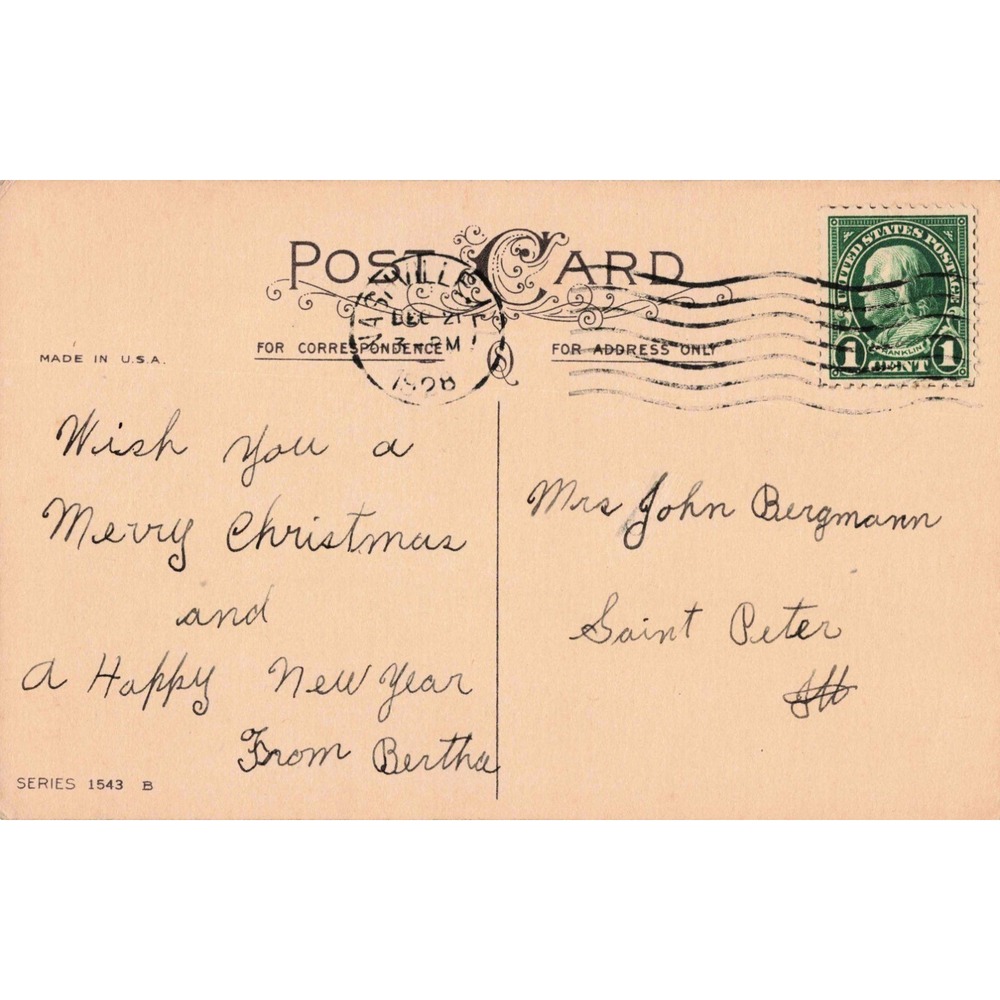 POST CARD
DEC 21
3 PM
1928
UNITED STATES POSTAGE
FRANKLIN
1 CENT 1
MADE IN U.S.A.
FOR CORRESPONDENCE
FOR ADDRESS ONLY
Wish you a
Merry Christmas
and
A Happy New Year
From Bertha
Mrs John Bergmann
Saint Peter
Ill
SERIES 1543 B